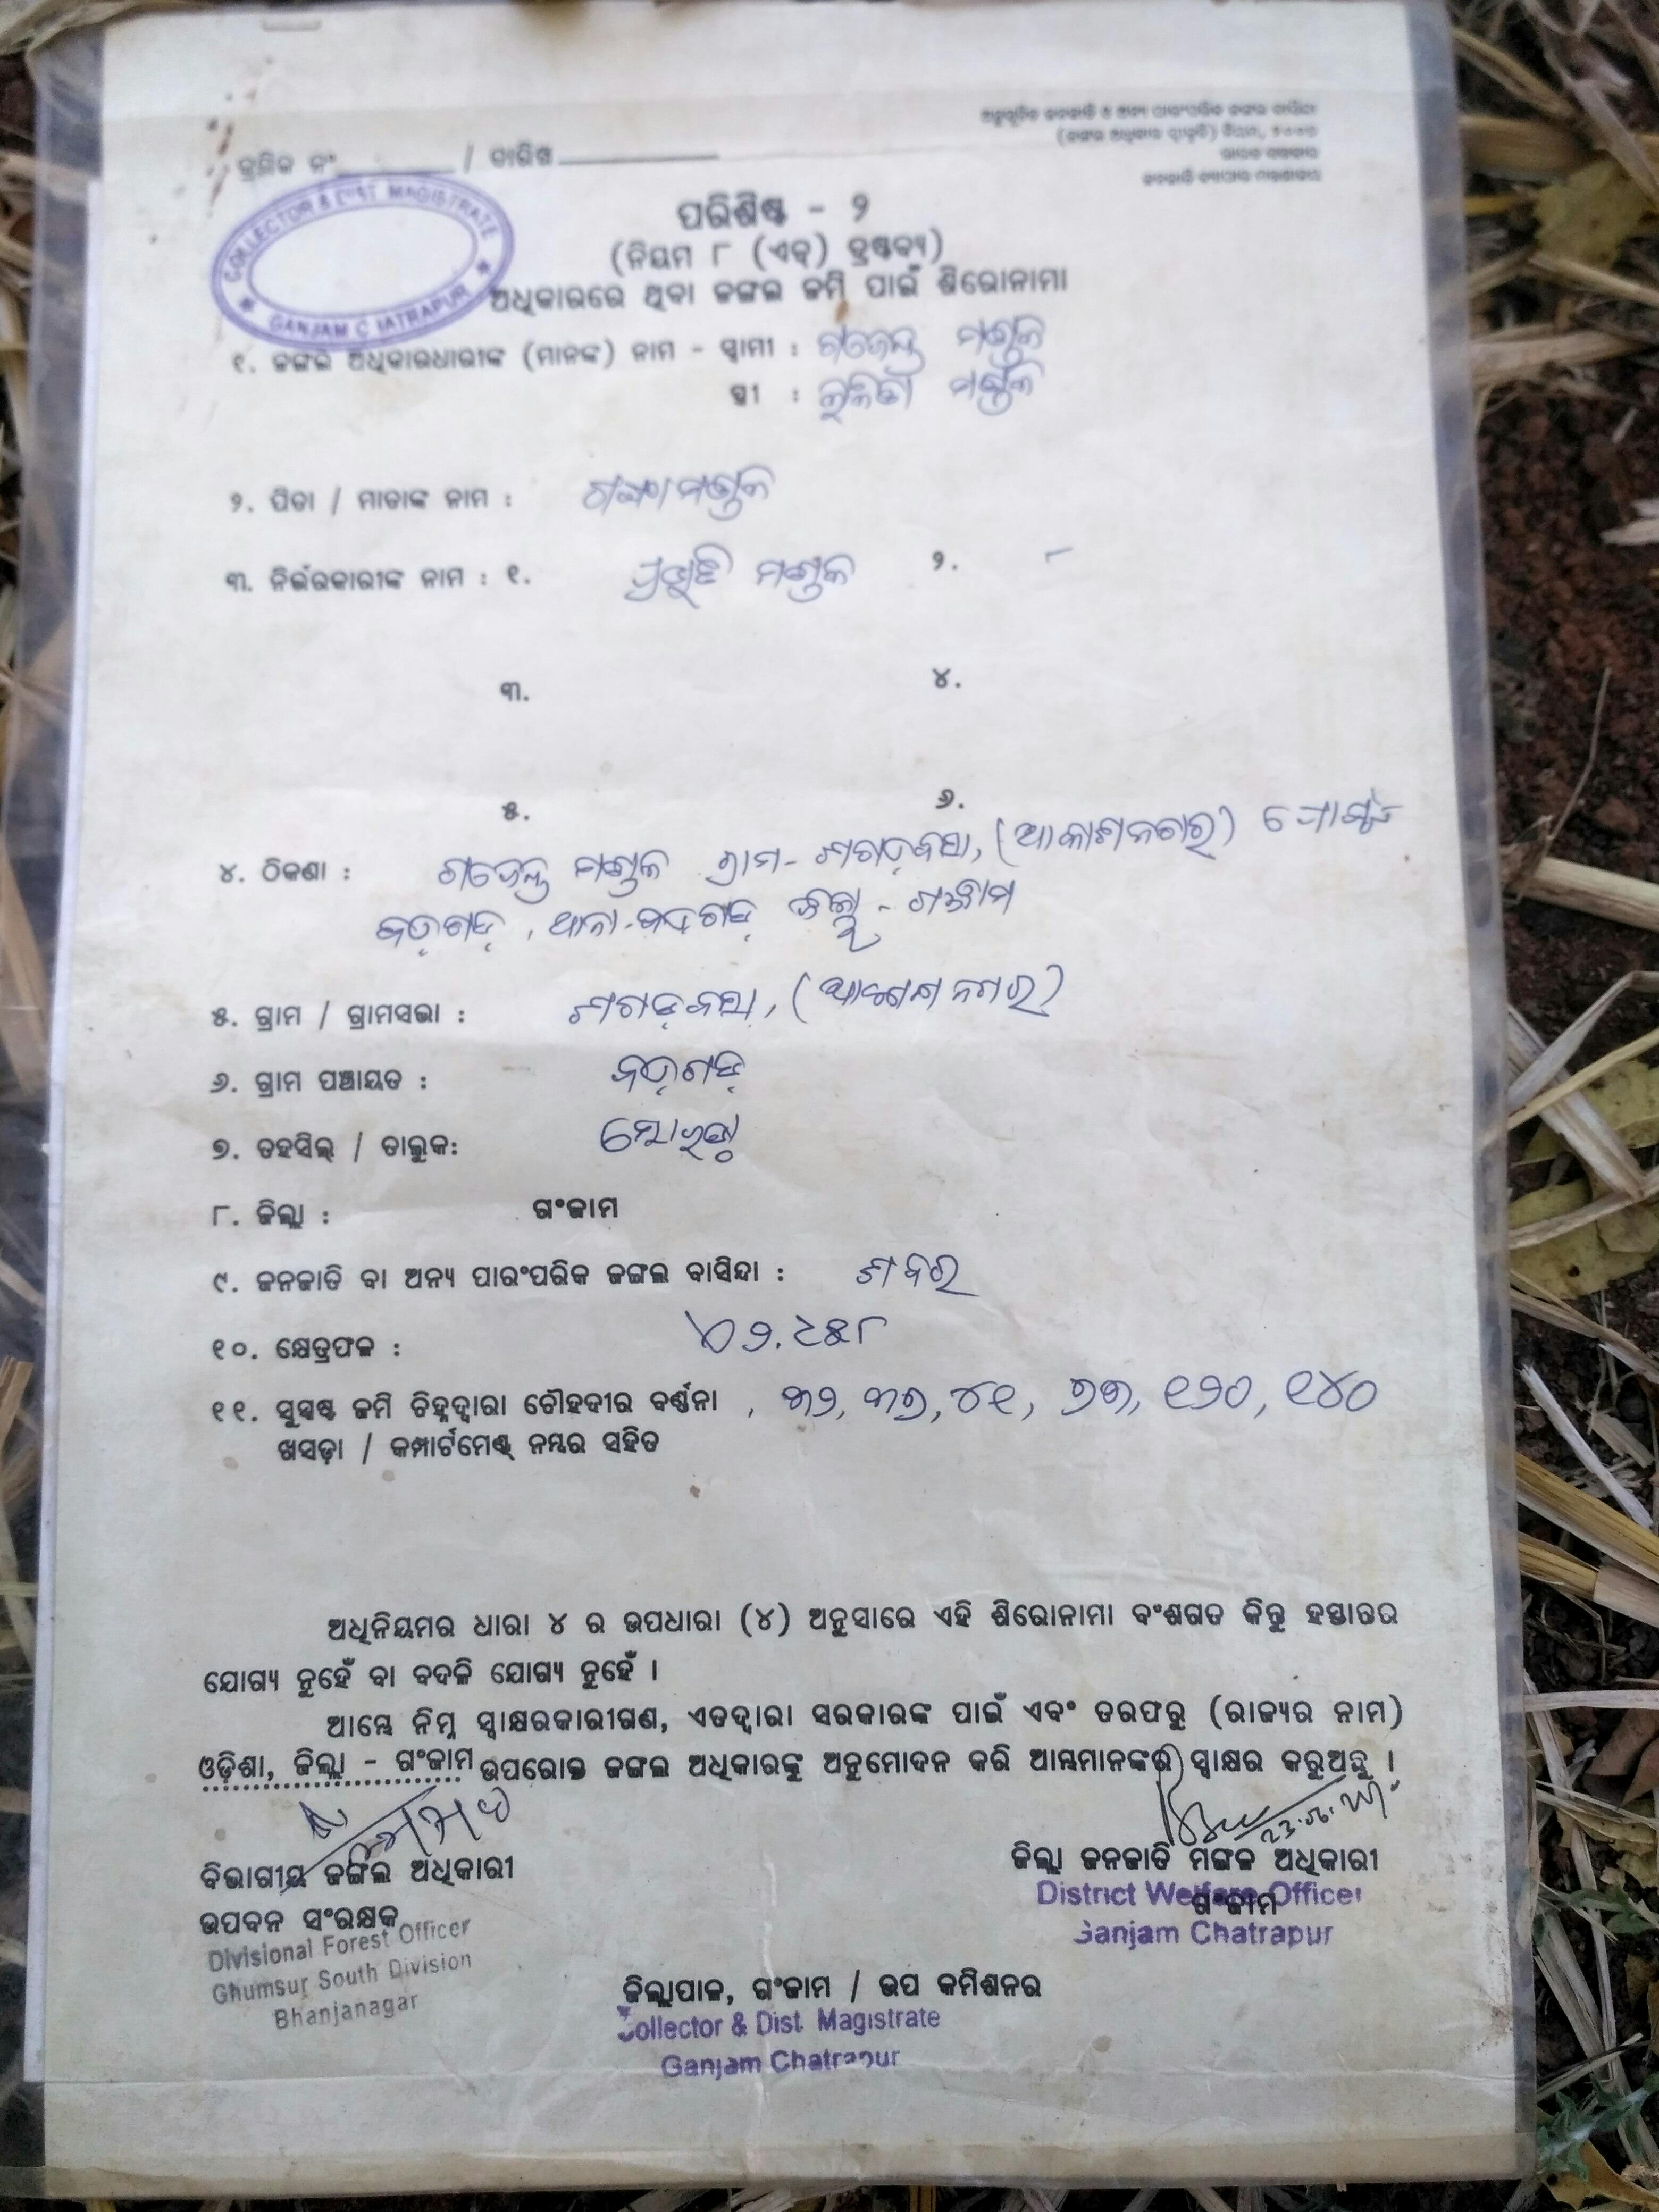 କ୍ରମିକ ନଂ / ତାରିଖ
ଅନୁସୂଚିତ ଜନଜାତି ଓ ଅନ୍ୟ ପାରଂପରିକ ଜଙ୍ଗଲ ବାସିନ୍ଦା
(ଜଙ୍ଗଲ ଅଧିକାର ସ୍ୱୀକୃତି) ନିୟମ, ୨୦୦୭
ଭାରତ ସରକାର
ଜନଜାତି ବ୍ୟାପାର ମନ୍ତ୍ରଣାଳୟ
COLLECTOR & DIST MAGISTRATE
GANJAM C IATRAPUR
ପରିଶିଷ୍ଟ - ୨
(ନିୟମ ୮ (ଏଚ୍) ଦ୍ରଷ୍ଟବ୍ୟ)
ଅଧିକାରରେ ଥିବା ଜଙ୍ଗଲ ଜମି ପାଇଁ ଶିରୋନାମା
୧. ଜଙ୍ଗଲ ଅଧିକାରଧାରୀଙ୍କ (ମାନଙ୍କ) ନାମ - ସ୍ୱାମୀ : ଗଜେନ୍ଦ୍ର ମଣ୍ଡଳ
ସ୍ତ୍ରୀ : ମଣ୍ଡଳ
୨. ପିତା / ମାତାଙ୍କ ନାମ : ମଣ୍ଡଳ
୩. ନିର୍ଭରକାରୀଙ୍କ ନାମ : ୧. ମଣ୍ଡଳ ୨. -
୩. ୪.
୫. ୬.
୪. ଠିକଣା : ଗଜେନ୍ଦ୍ର ମଣ୍ଡଳ ଗ୍ରାମ- ଶଗଡ଼ବସା, (ଆକାଶନଗର) ପୋଷ୍ଟ
ବଡ଼ଗଡ଼, ଥାନା-ବଡ଼ଗଡ଼ ଜିଲ୍ଲା - ଗଞ୍ଜାମ
୫. ଗ୍ରାମ / ଗ୍ରାମସଭା : ଶଗଡ଼ବସା, (ଆକାଶ ନଗର)
୬. ଗ୍ରାମ ପଞ୍ଚାୟତ : ବଡ଼ଗଡ଼
୭. ତହସିଲ୍ / ତାଲୁକ: ସୋରଡ଼ା
୮. ଜିଲ୍ଲା : ଗଂଜାମ
୯. ଜନଜାତି ବା ଅନ୍ୟ ପାରଂପରିକ ଜଙ୍ଗଲ ବାସିନ୍ଦା : ଶବର
୧୦. କ୍ଷେତ୍ରଫଳ :
୧୧. ସୁସ୍ପଷ୍ଟ ଜମି ଚିହ୍ନଦ୍ୱାରା ଚୌହଦୀର ବର୍ଣ୍ଣନା , ୩୨, ୩୭, ୪୧, ୭୩, ୧୨୦, ୧୪୦
ଖସଡ଼ା / କମ୍ପାର୍ଟମେଣ୍ଟ୍ ନମ୍ବର ସହିତ
ଅଧିନିୟମର ଧାରା ୪ ର ଉପଧାରା (୪) ଅନୁସାରେ ଏହି ଶିରୋନାମା ବଂଶଗତ କିନ୍ତୁ ହସ୍ତାନ୍ତର
ଯୋଗ୍ୟ ନୁହେଁ ବା ବଦଳି ଯୋଗ୍ୟ ନୁହେଁ ।
ଆମ୍ଭେ ନିମ୍ନ ସ୍ୱାକ୍ଷରକାରୀଗଣ, ଏତଦ୍ୱାରା ସରକାରଙ୍କ ପାଇଁ ଏବଂ ତରଫରୁ (ରାଜ୍ୟର ନାମ)
ଓଡ଼ିଶା, ଜିଲ୍ଲା - ଗଂଜାମ ଉପରୋକ୍ତ ଜଙ୍ଗଲ ଅଧିକାରଙ୍କୁ ଅନୁମୋଦନ କରି ଆମ୍ଭମାନଙ୍କର ସ୍ୱାକ୍ଷର କରୁଅଛୁ ।
ବିଭାଗୀୟ ଜଙ୍ଗଲ ଅଧିକାରୀ
ଉପବନ ସଂରକ୍ଷକ
Divisional Forest Officer
Ghumsur South Division
Bhanjanagar
ଜିଲ୍ଲା ଜନଜାତି ମଙ୍ଗଳ ଅଧିକାରୀ
ଗଂଜାମ
District Welfare Officer
Ganjam Chatrapur
ଜିଲ୍ଲାପାଳ, ଗଂଜାମ / ଉପ କମିଶନର
Collector & Dist. Magistrate
Ganjam Chatrapur